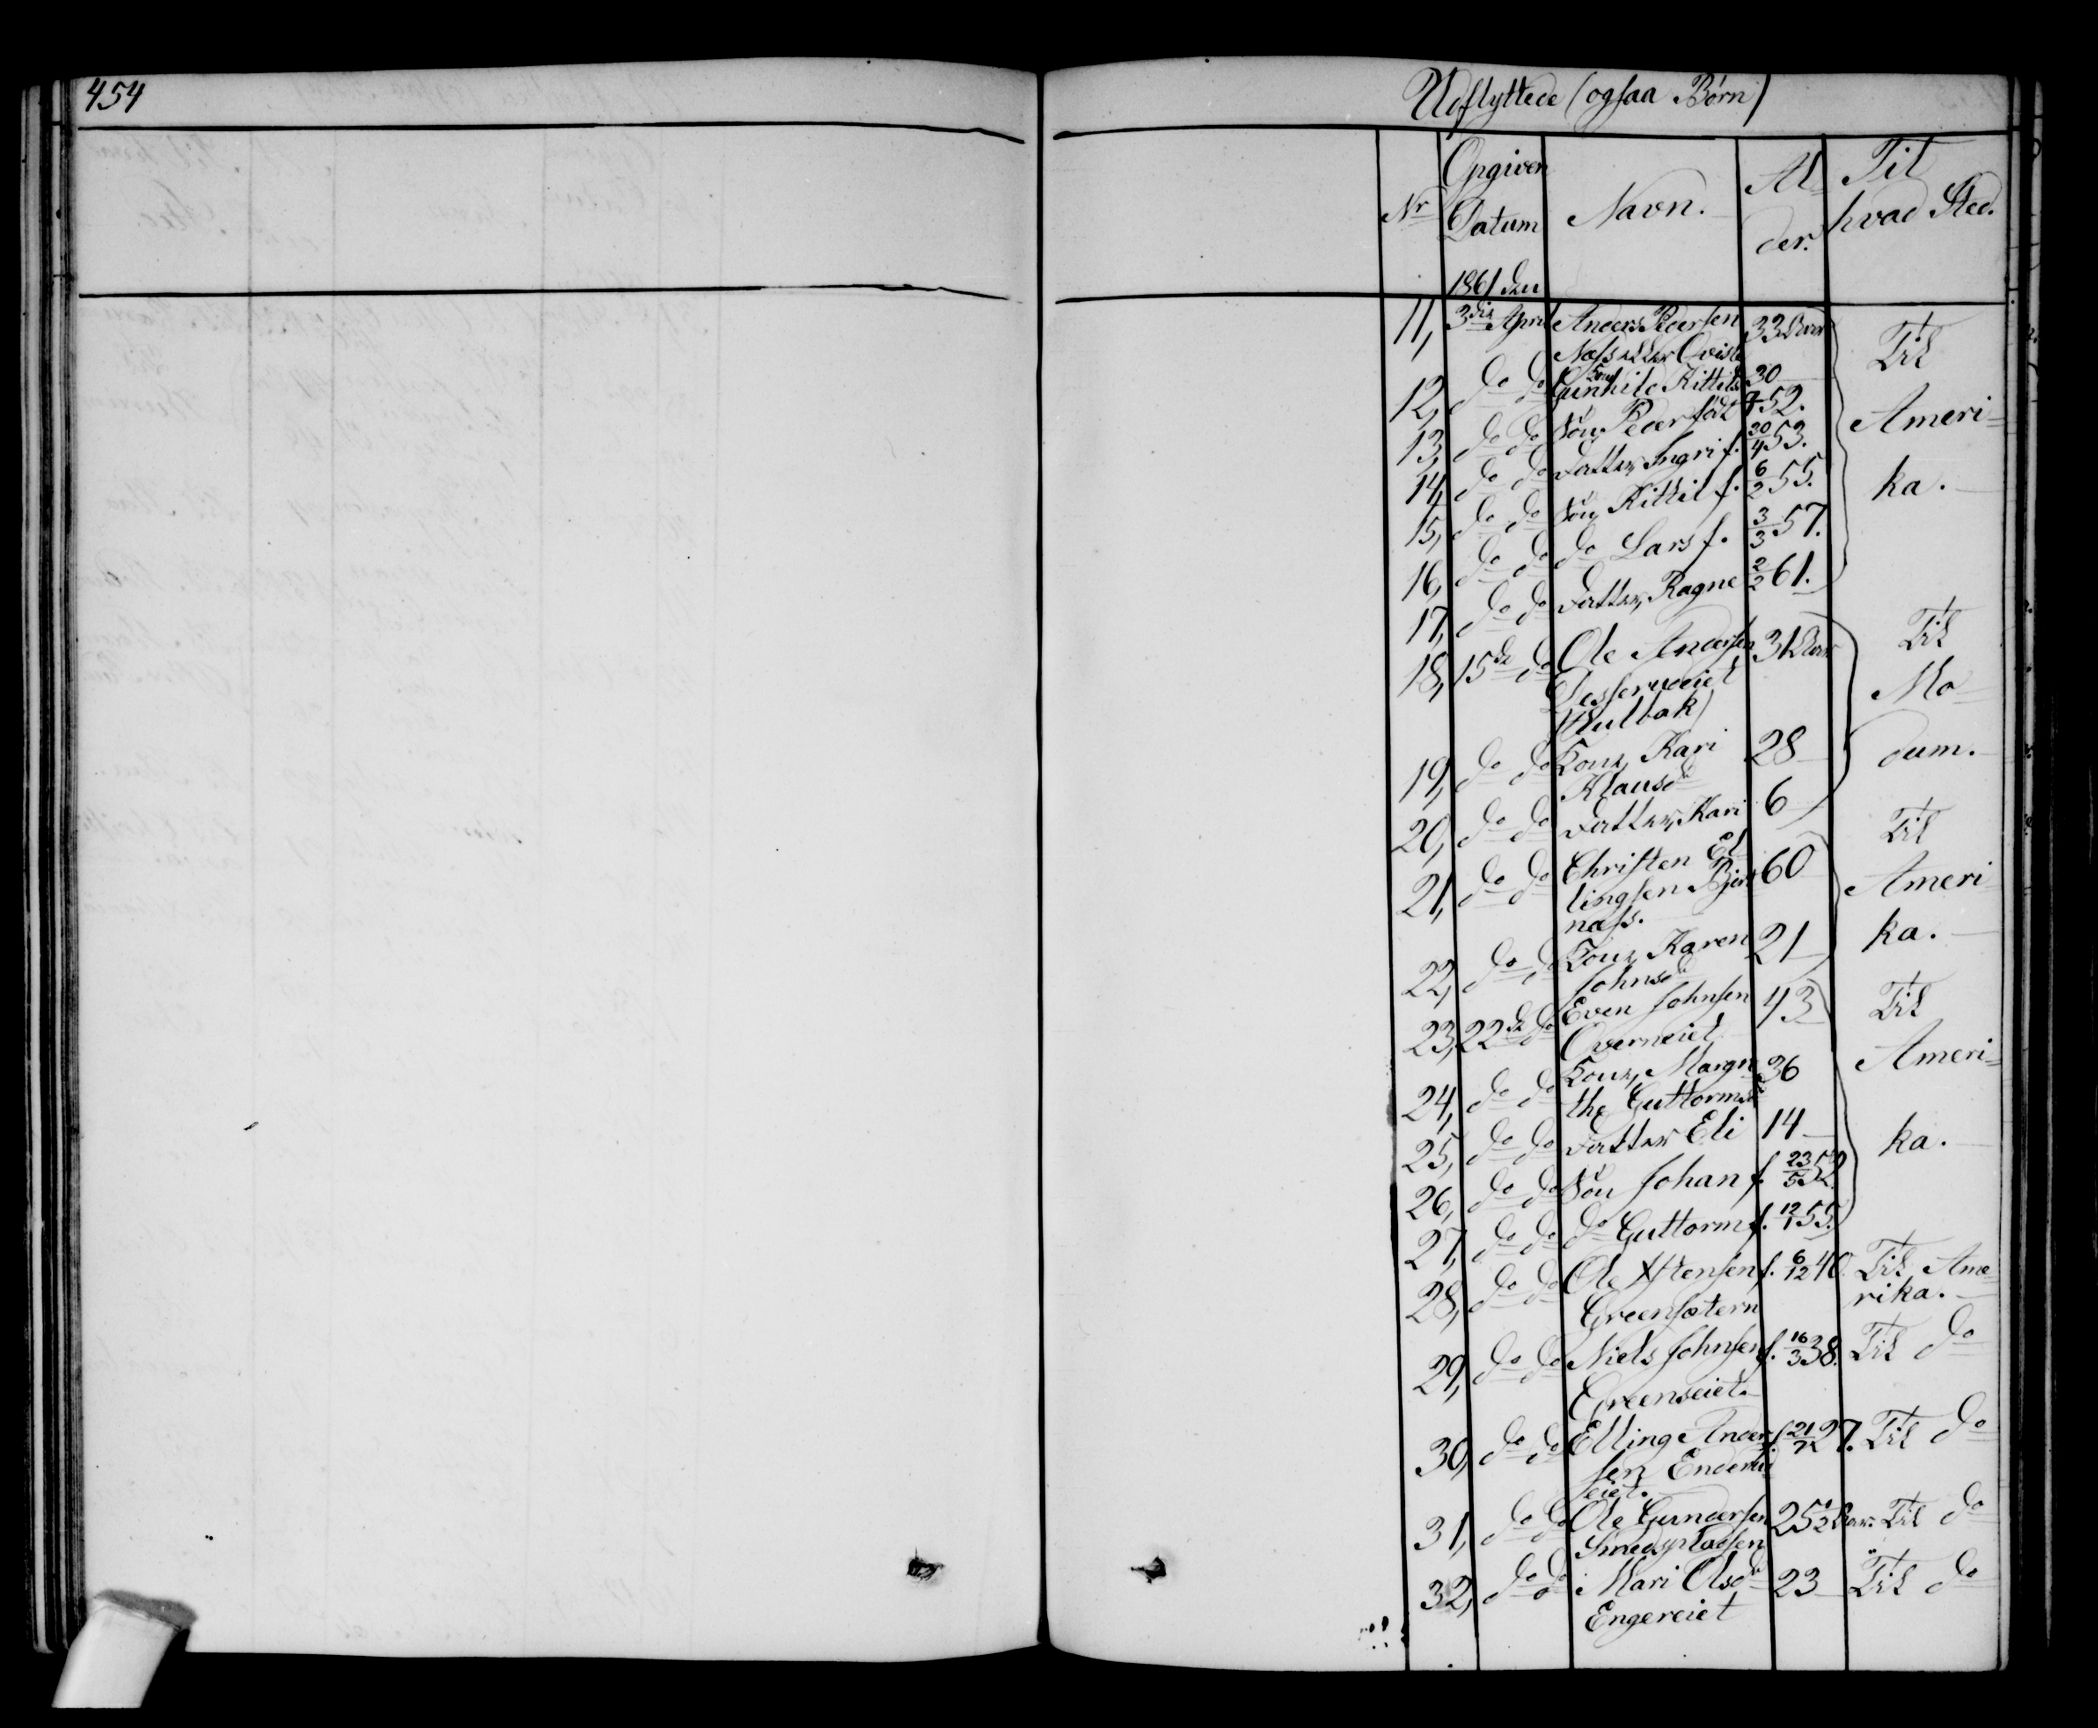 454
Udflyttede (ogsaa Børn)
Nr Opgiven Datum Navn. Al der. Til hvad Sted.
1861 den
11, 3die April Anders Pedersen 33 Aar Til
Næss
12, do do Kone Gunhild Kittelsd 30 Ameri=
13, do do Søn Peder født 52. ka.
14, do do Datter Ingri f. 30/4 53.
15, do do Søn Kittil f. 6/2 55.
16, do do do Lars f. 3/3 57.
17, do do Datter, Ragne 2/2 61.
18, 15de do Ole Andersen 31 Aar Til
Mo
(Hulbak)
19, do do Kone, Kari 28 dum.
Klausd
20, do do Datter, Kari 6
21, do do Christen El 60 Til
lingsen Bjer Ameri
næss.
22, do do Kone, Karen 21 ka.
Johnsd
23, 22de do Even Johnsen 43 Til
Overneiet Ameri=
24, do do Kone, Margre 36
the Guttormsd
25, do do Datter Eli 14 ka.
26, do do Søn Johan f. 23/5 52
27, do do do Guttorm f. 12/1 55.
28, do do Ole Stensen f. 6/12 40. Til Ame
Greensætern rika.
29, do do Niels Johnsen f. 16/3 38. Til do
Greenseiet.
30, do do Elling Ander f. 21/7 27. Til do
sen Enderud
eiet.
31, do do Ole Gundersen 25 1/2 Aar. Til do
Smedspladsen
32, do do Mari Olsd 23 Til do
Engereiet